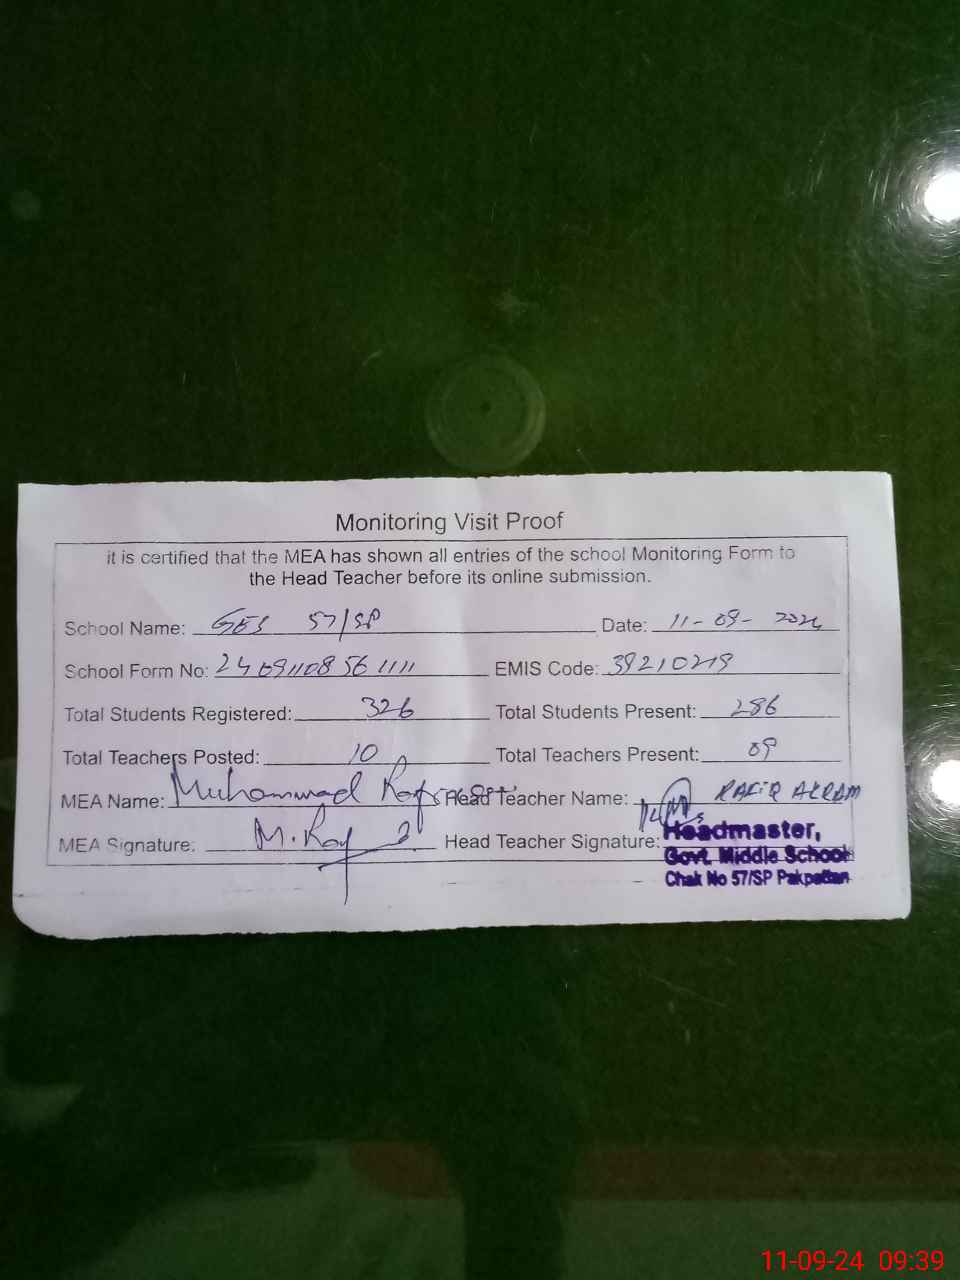 Monitoring Visit Proof
it is certified that the MEA has shown all entries of the school Monitoring Form to
the Head Teacher before its online submission.
School Name: GES 57/SP Date: 11-09-2024
School Form No: 24091108561111 EMIS Code: 39210219
Total Students Registered: 326 Total Students Present: 286
Total Teachers Posted: 10 Total Teachers Present: 09
MEA Name: Muhammad Head Teacher Name: RAFIQ AKRAM
MEA Signature: Head Teacher Signature:
Headmaster,
Govt. Middle School
Chak No 57/SP Pakpattan
11-09-24 09:39